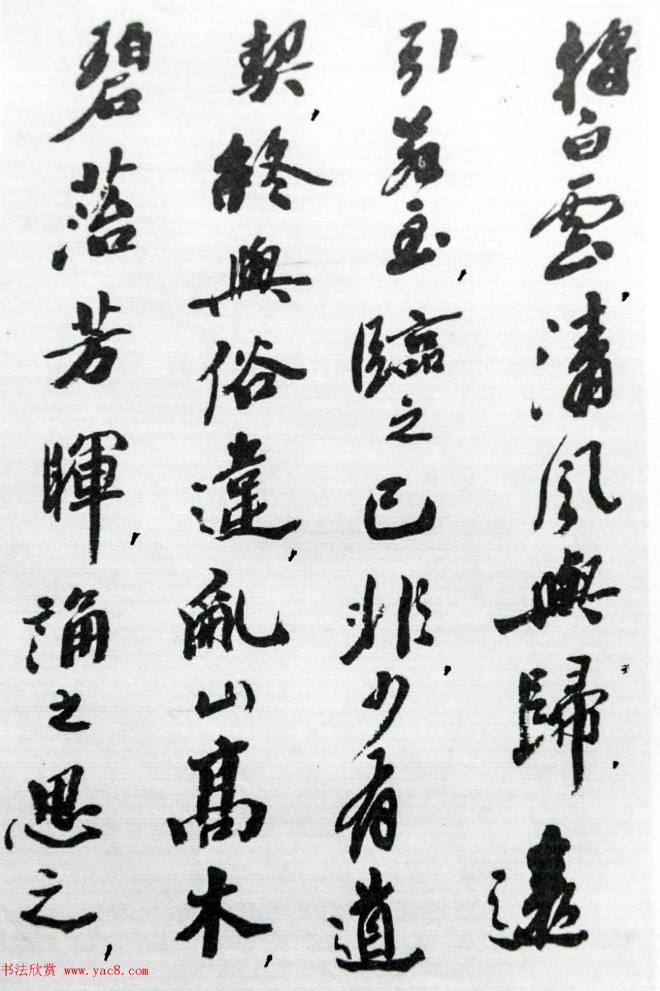 將白雲,清風與歸,遠
引若至,臨之已非,少有道
契,終與俗違,亂山髙木,
碧落芳暉,誦之思之,
书法欣赏 www.yac8.com